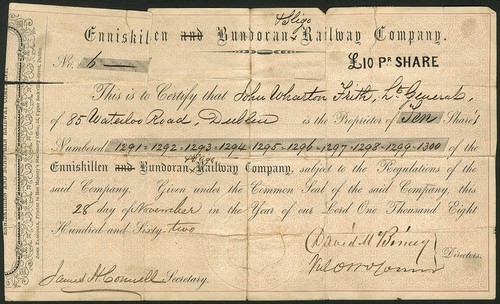 & Sligo
Enniskillen and Bundoran Railway Company.
No. 6
£10 PR SHARE
This is to Certify that John Wharton Frith, Lt General,
of 85 Waterloo Road, Dublin is the Proprietor of Ten Share s
Numbered 1291-1292-1293-1294-1295-1296-1297-1298-1299-1300 of the
& Sligo
Enniskillen and Bundoran Railway Company, subject to the Regulations of the
said Company. Given under the Common Seal of the said Company, this
28 day of November in the Year of our Lord One Thousand Eight
Hundred and Sixty two
David M Birney
Directors.
James H Connell Secretary.